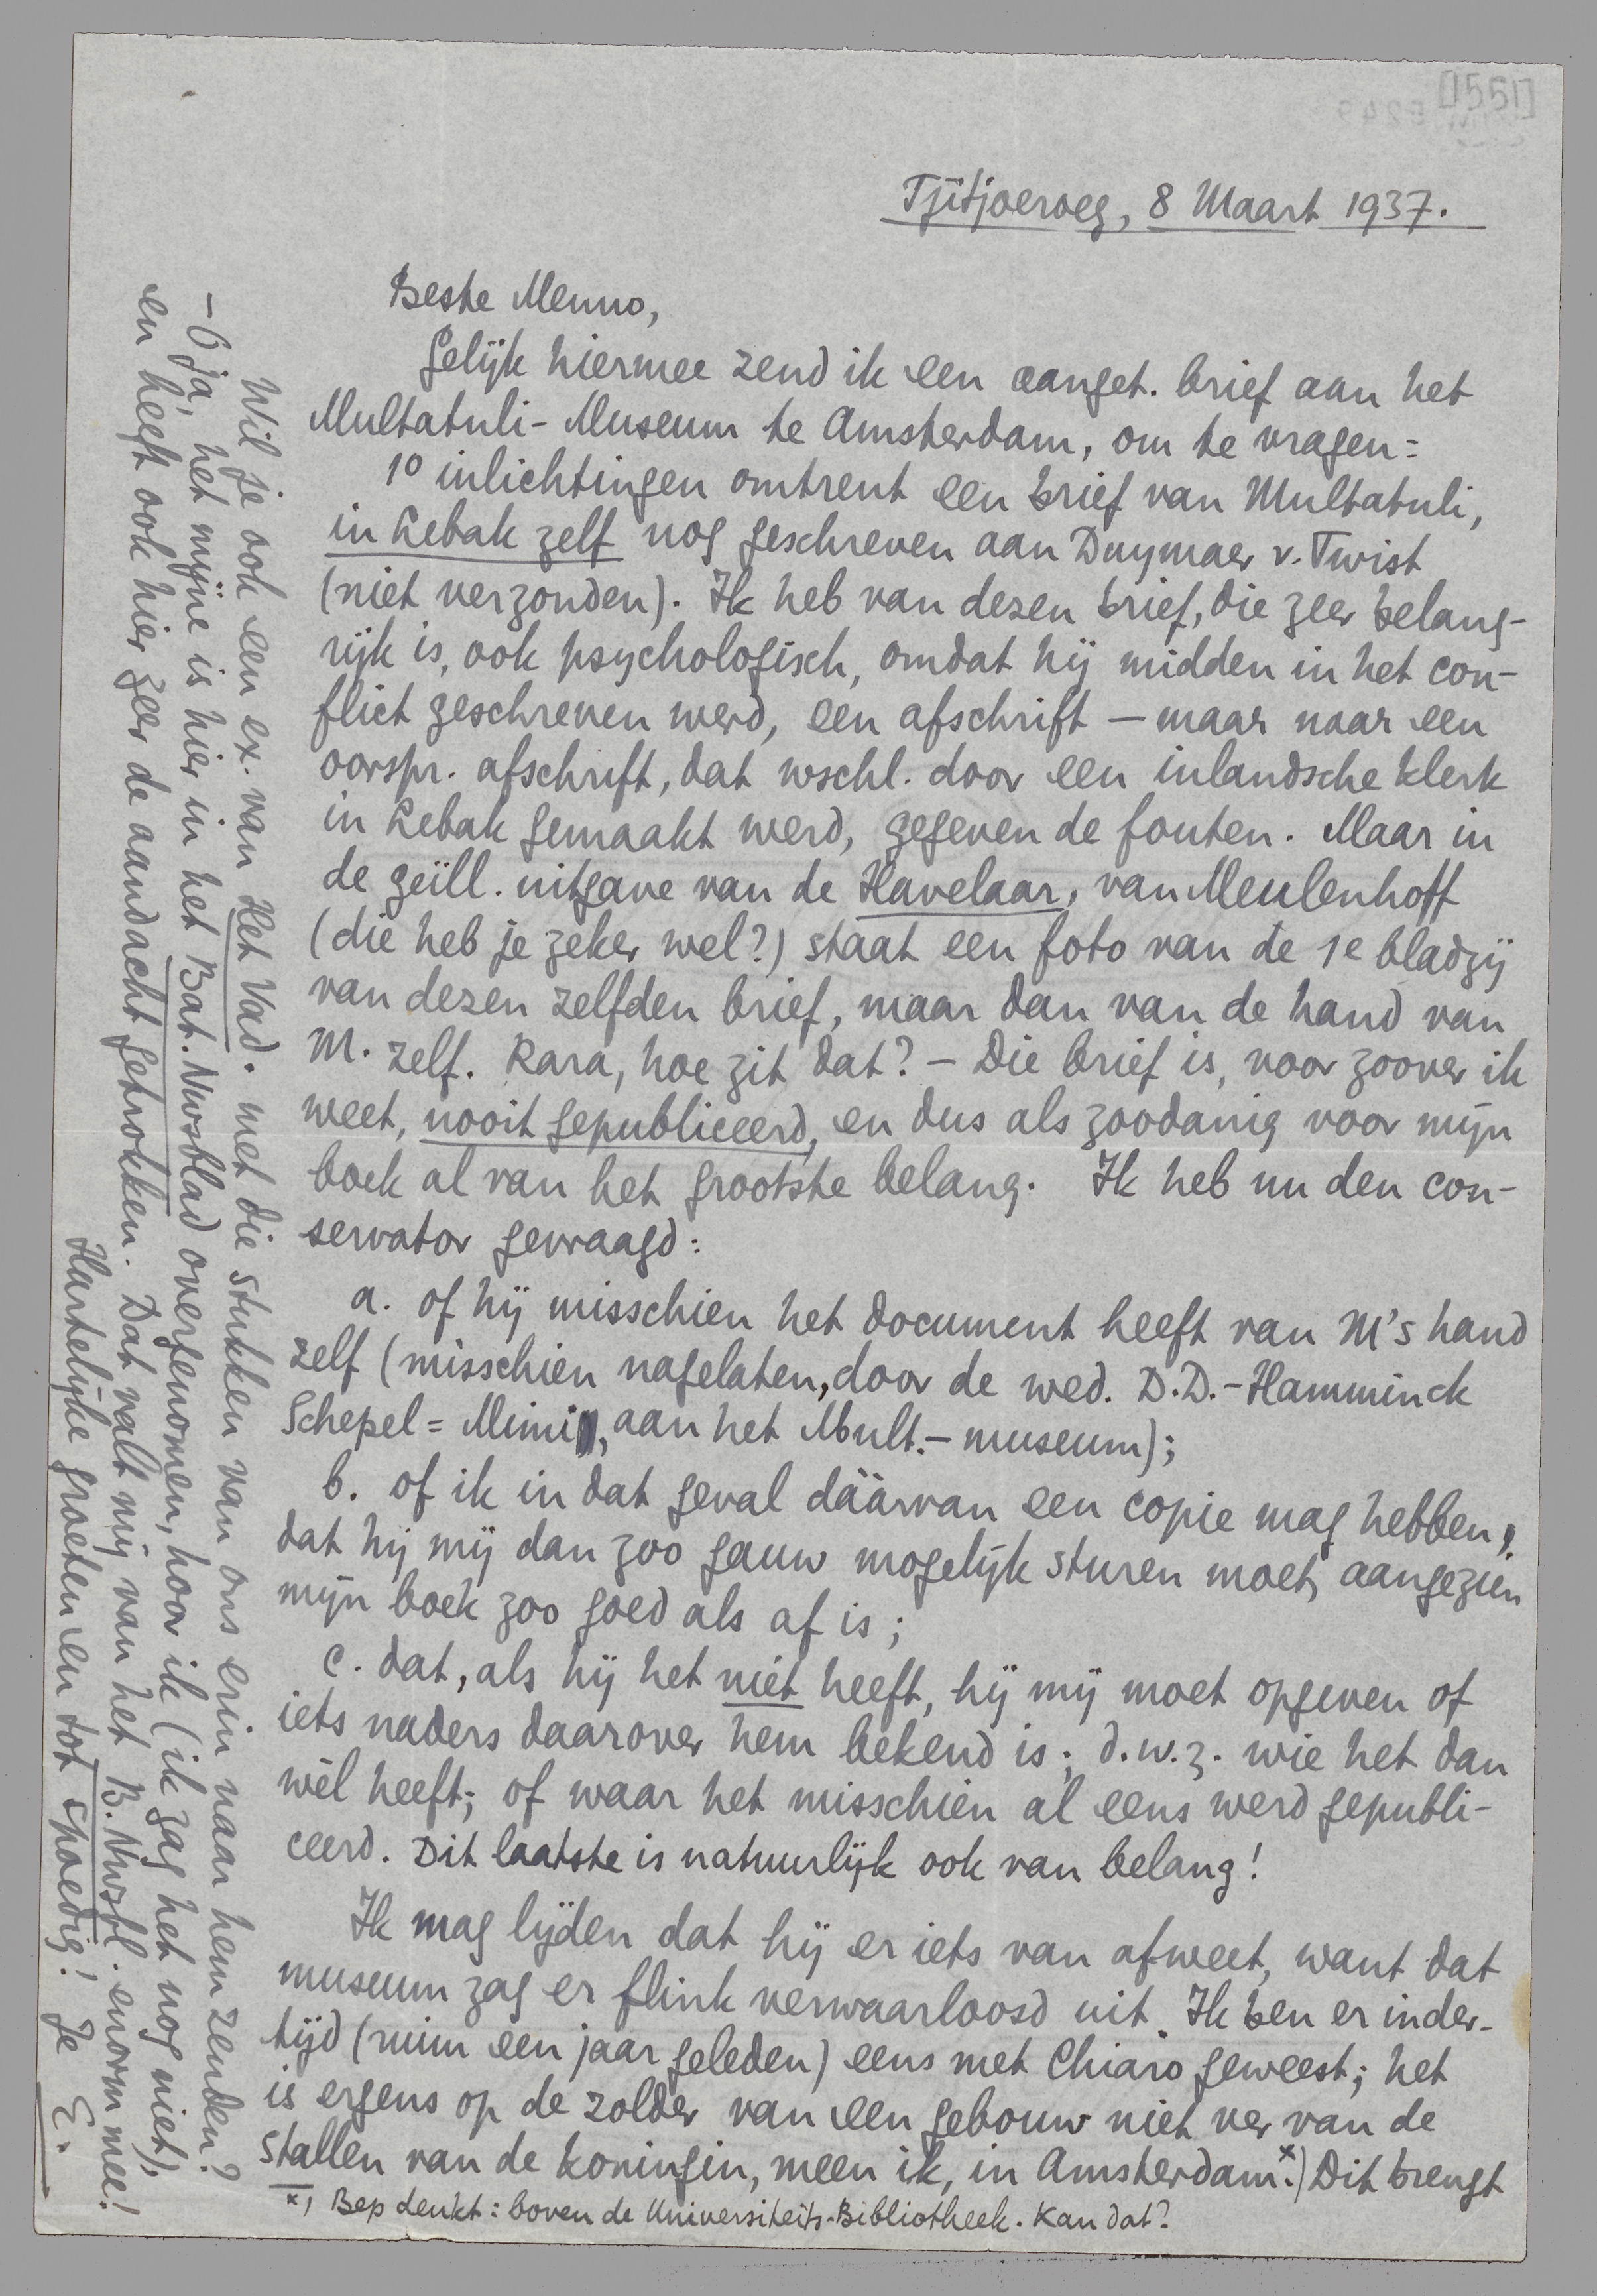 Tjitjoeroeg, 8 Maart 1937.
Beste Menno,
Gelijk hiermee zend ik een aanget. brief aan het
Multatuli-Museum te Amsterdam, om te vragen:
1º inlichtingen omtrent een brief van Multatuli,
in Lebak zelf nog geschreven aan Duymaer v. Twist
(niet verzonden). Ik heb van dezen brief, die zeer belang-
rijk is, ook psychologisch, omdat hij midden in het con-
flict geschreven werd, een afschrift — maar naar een
oorspr. afschrift, dat wschl. door een inlandsche klerk
in Lebak gemaakt werd, gegeven de fouten. Maar in
de geïll. uitgave van de Havelaar, van Meulenhoff
(die heb je zeker wel?) staat een foto van de 1e bladzij
van dezen zelfden brief, maar dan van de hand van
M. zelf. Rara, hoe zit dat? — Die brief is, voor zoover ik
weet, nooit gepubliceerd, en dus als zoodanig voor mijn
boek al van het grootste belang. Ik heb nu den con-
servator gevraagd:
a. of hij misschien het document heeft van M's hand
zelf (misschien nagelaten, door de wed. D.D.-Hamminck
Schepel = Mimi, aan het Mult.-museum);
b. of ik in dat geval dáárvan een copie mag hebben,
dat hij mij dan zoo gauw mogelijk sturen moet, aangezien
mijn boek zoo goed als af is;
c. dat, als hij het niet heeft, hij mij moet opgeven of
iets naders daarover hem bekend is; d.w.z. wie het dan
wèl heeft; of waar het misschien al eens werd gepubli-
ceerd. Dit laatste is natuurlijk ook van belang!
Ik mag lijden dat hij er iets van afweet, want dat
museum zag er flink verwaarloosd uit. Ik ben er inder-
tijd (ruim een jaar geleden) eens met Chiaro geweest; het
is ergens op de zolder van een gebouw niet ver van de
stallen van de koningin, meen ik, in Amsterdam.x) Dit brengt
x) Bep denkt: boven de Universiteits-Bibliotheek. Kan dat?
Wil je ook een ex. van Het Vad. met die stukken van ons erin naan hem zenden?
– O ja, het mijne is hier in het Bat. Nwsblad overgenomen, hoor ik (ik zag het nog niet),
en heeft ook hier zeer de aandacht getrokken. Dat valt mij van het B. Nwsbl. enorm mee!
Hartelijke groeten en tot spoedig! Je E.